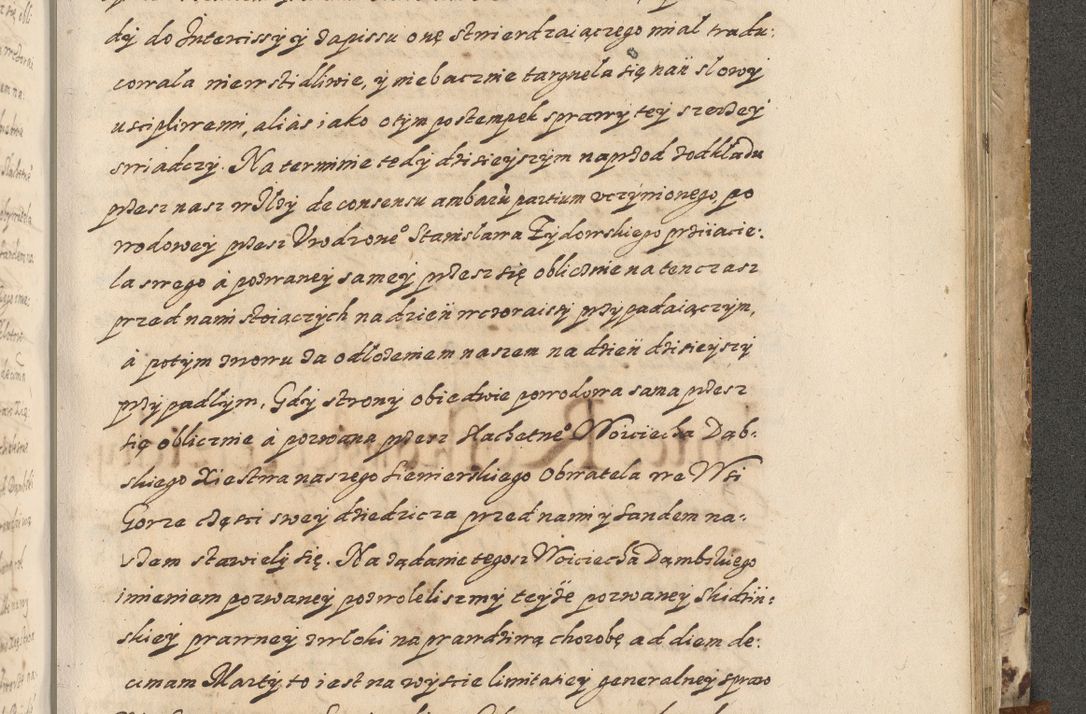 dy do Intercissyy zapissu onę stwierdzaiączego miał tradu:
cowala niewstidliwie, y niebacznie targnela się nań słowy
usciplïwemi, aliàs iako otym postempek sprawy tey szerzey
swiadczy. Na terminie tedy dzisieyszym naprzod zodkładu
przesz nasz w Ilzy de consensu ambarũ partium uczynionego po
wodowey przesz Urodzone° Stanisława Zydowskiego prziiacie:
la swego à pozwaney samey przesz się oblicznie na tenczasz
przed nami stoiączych na dzień wczoraiszy przypadaiączym,
à potym znowu za odłożeniem naszem na dzień dzisieyszy
przypadłym, Gdy strony obiedwie powodowa sama przesz
się oblicznie à pozwana przesz Slachetne° Woiciecha Dąb:
skiego Xiestwa naszego Siewierskiego Obwatela we Wsi
Gorze częsci swey dziedzicza przed nami y Sandem na:
szem stawiely się. Na żądanie tegosz Woiciecha Dąmbskiego
imieniem pozwaney pozwoleliszmy teyże pozwaney Skidziń:
skiey prawney zwłoki na prawdziwą chorobę ad diem de:
cimam Marty to iest na wyście limitatiey generalney spraw